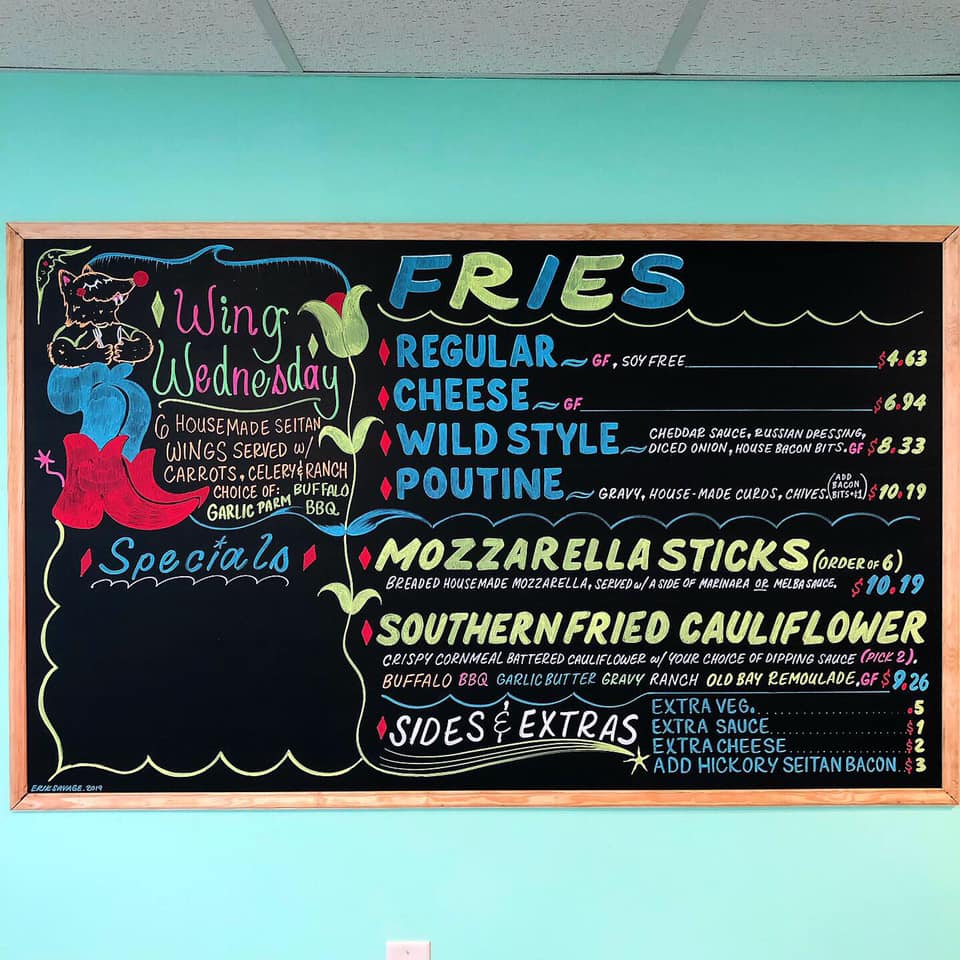 Wing
Wednesday
6 HOUSEMADE SEITAN
WINGS SERVED W/
CARROTS, CELERY & RANCH
CHOICE OF: BUFFALO
GARLIC PARM BBQ
Specials
FRIES
REGULAR ~ GF, SOY FREE $4.63
CHEESE ~ GF $6.94
WILD STYLE ~ CHEDDAR SAUCE, RUSSIAN DRESSING,
DICED ONION, HOUSE BACON BITS. GF $8.33
POUTINE ~ GRAVY, HOUSE-MADE CURDS, CHIVES (ADD BACON BITS +$1) $10.19
MOZZARELLA STICKS (ORDER OF 6)
BREADED HOUSEMADE MOZZARELLA, SERVED W/ A SIDE OF MARINARA OR MELBA SAUCE. $10.19
SOUTHERN FRIED CAULIFLOWER
CRISPY CORNMEAL BATTERED CAULIFLOWER W/ YOUR CHOICE OF DIPPING SAUCE (PICK 2).
BUFFALO BBQ GARLIC BUTTER GRAVY RANCH OLD BAY REMOULADE. GF $9.26
SIDES & EXTRAS
EXTRA VEG. .5
EXTRA SAUCE $1
EXTRA CHEESE $2
ADD HICKORY SEITAN BACON $3
ERIK SAVAGE. 2019